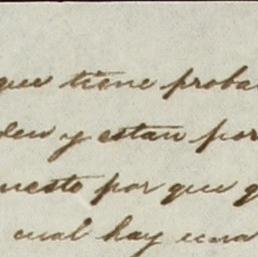 que tiene proba
den y estan por
uesto por que q
cual hay una